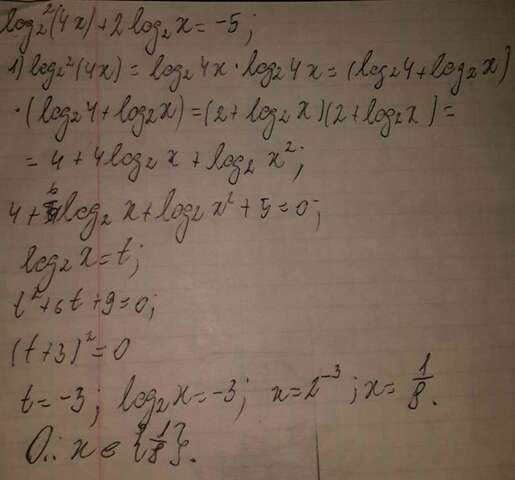 log₂²(4x)+2log₂x=-5;
1) log₂²(4x) = log₂4x·log₂4x = (log₂4+log₂x)
·(log₂4+log₂x) = (2+log₂x)(2+log₂x) =
= 4+4log₂x+log₂x²;
4+6log₂x+log₂x²+5=0;
log₂x=t;
t²+6t+9=0;
(t+3)²=0
t=-3; log₂x=-3; x=2⁻³; x=1/8.
О.: x∈{1/8}.